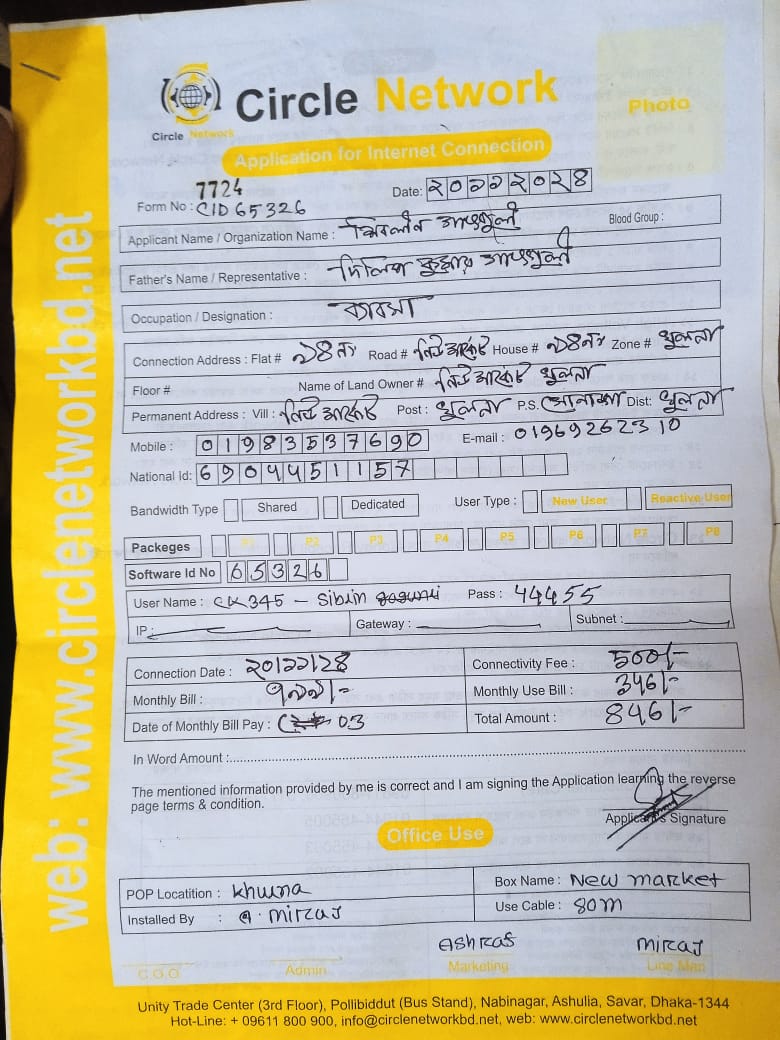 Circle Network
Circle Network
Photo
Application for Internet Connection
7724
Form No : CID 65326
Date: ২০১১২০২৪
Applicant Name / Organization Name :
Blood Group :
Father's Name / Representative : দিলিপ কুমার
Occupation / Designation : ব্যবসা
Connection Address : Flat # ১৪ নং Road # নিউ মার্কেট House # ১৪ নং Zone # খুলনা
Floor # Name of Land Owner # নিউ মার্কেট খুলনা
Permanent Address : Vill : নিউ মার্কেট Post : খুলনা P.S. Dist: খুলনা
Mobile : 01983537690 E-mail : 01969262310
National Id: 6904451157
Bandwidth Type Shared Dedicated User Type : New User Reactive User
Packeges P1 P2 P3 P4 P5 P6 P7 P8
Software Id No 65326
User Name : CK345 - Pass : 44455
IP : Gateway : Subnet :
Connection Date : ২০/১১/২৪ Connectivity Fee : 500/-
Monthly Bill : Monthly Use Bill : 346/-
Date of Monthly Bill Pay : 03 Total Amount : 846/-
In Word Amount :
The mentioned information provided by me is correct and I am signing the Application learning the reverse
page terms & condition.
Applicant's Signature
Office Use
POP Locatition : Khulna Box Name : New market
Installed By : Miraj Use Cable : 80m
Ashraf Miraj
C.O.O Admin Marketing Line Man
Unity Trade Center (3rd Floor), Pollibiddut (Bus Stand), Nabinagar, Ashulia, Savar, Dhaka-1344
Hot-Line: + 09611 800 900, info@circlenetworkbd.net, web: www.circlenetworkbd.net
web: www.circlenetworkbd.net